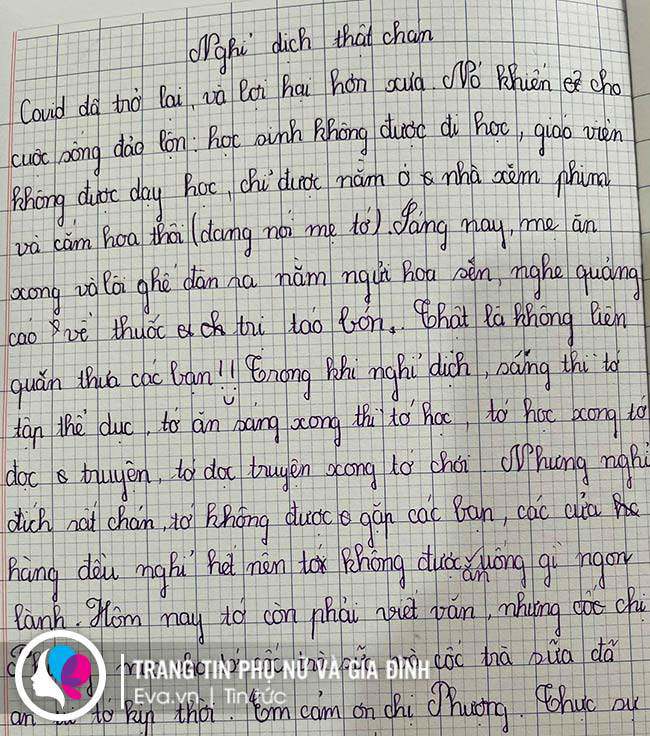 Nghỉ dịch thật chán
Covid đã trở lại, và lợi hại hơn xưa. Nó khiến cho
cuộc sống đảo lộn: học sinh không được đi học, giáo viên
không được dạy học, chỉ được nằm ở nhà xem phim
và cắm hoa thôi (đang nói mẹ tớ). Sáng nay, mẹ ăn
xong và lôi ghế đàn ra nằm ngửi hoa sen, nghe quảng
cáo về thuốc trị táo bón. Thật là không liên
quan thưa các bạn!! Trong khi nghỉ dịch, sáng thì tớ
tập thể dục, tớ ăn sáng xong thì tớ học, tớ học xong tớ
đọc truyện, tớ đọc truyện xong tớ chơi. Nhưng nghỉ
dịch rất chán, tớ không được gặp các bạn, các cửa
hàng đều nghỉ hết nên tớ không được ăn uống gì ngon
lành. Hôm nay tớ còn phải viết văn, nhưng chị
cốc trà sữa đã
an ủi tớ kịp thời. Em cảm ơn chị Phương. Thực sự
TRANG TIN PHỤ NỮ VÀ GIA ĐÌNH
Eva.vn | Tin tức